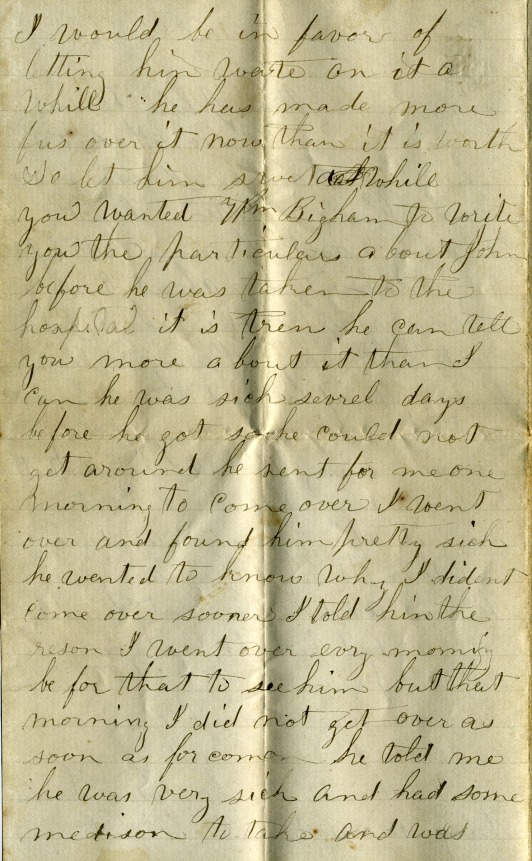 I would be in favor of
letting him wate on it a
while he has made more
fus over it now than it is worth
So let him while
you wanted Wm Bigham to write
you the particulars about John
before he was taken to the
hospital it is treu he can tell
you more about it than I
can he was sick sevrel days
before he got so he could not
get around he sent for me one
morning to come over I went
over and found him pretty sick
he wanted to know why I dident
come over sooner I told him the
reson I went over evry morning
be for that to see him but that
morning I did not get over as
soon as for comon he told me
he was very sick and had some
medison to take and was